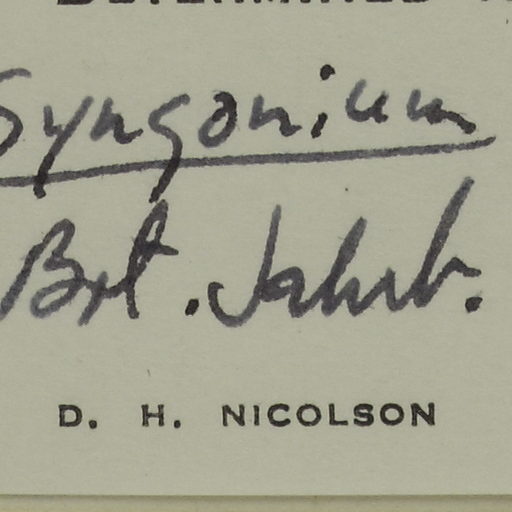 Syngonium
Bot. Jahrb.
D. H. NICOLSON